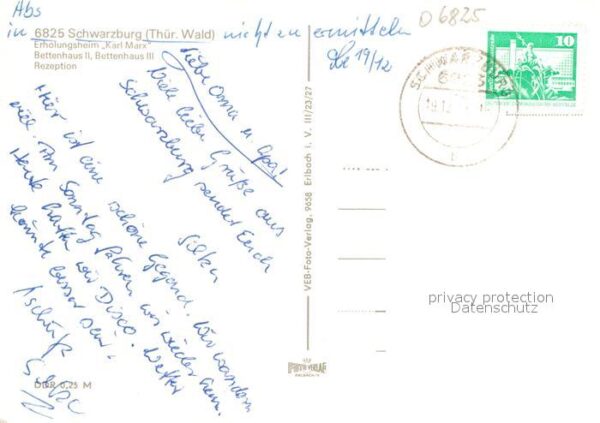 Abs
in 6825 Schwarzburg (Thür. Wald) nicht zu ermitteln
Erholungsheim „Karl Marx"
Bettenhaus II, Bettenhaus III
Rezeption
19/12
O 6825
10
SCHWARZBURG
Liebe Oma u. Opa!
Viele liebe Grüße aus
Schwarzburg sendet Euch
Silke
Hier ist eine schöne Gegend. Wir wandern
viel. Am Sonntag fahren wir wieder heim.
Heute hatten wir Disco. Wetter
könnte besser sein.
Tschüß
Silke
DDR 0,25 M
VEB-Foto-Verlag, 9658 Erlbach i. V. III/23/27
FOTO-VERLAG
ERLBACH-V.
privacy protection
Datenschutz